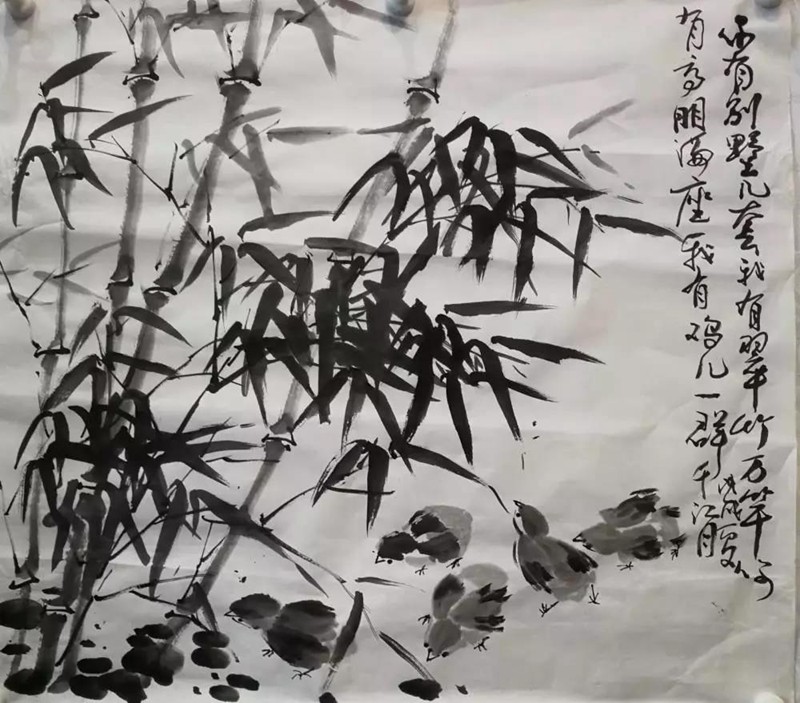 你有别墅几套我有翠竹万竿你
有高朋满座我有鸡儿一群千江月
戊戌夏